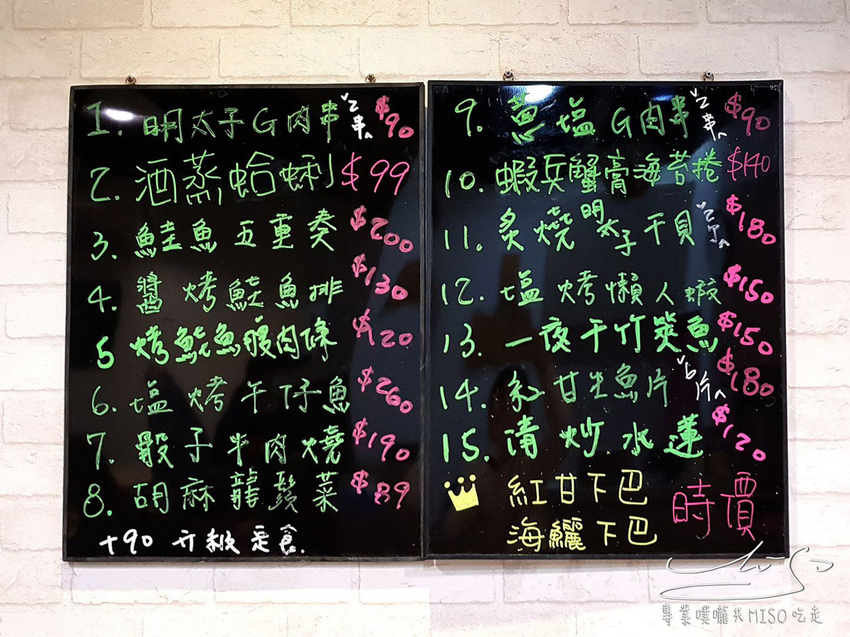 1. 明太子G肉串 2串 $90
2. 酒蒸蛤蜊 $99
3. 鮭魚五重奏 $200
4. 醬烤鮭魚排 $130
5 烤鮭魚腹肉條 $120
6. 塩烤午仔魚 $260
7. 骰子牛肉燒 $190
8. 胡麻龍鬚菜 $89
+90 升級定食.
9. 蔥塩G肉串 2串 $90
10. 蝦兵蟹膏海苔捲 $140
11. 炙燒明太子干貝 2顆 $180
12. 塩烤懶人蝦 $150
13. 一夜干竹筴魚 $150
14. 紅甘生魚片 6片 $180
15. 清炒水蓮 $120
紅甘下巴
海鱺下巴
時價
MISO
專業噗嚨共MISO吃走